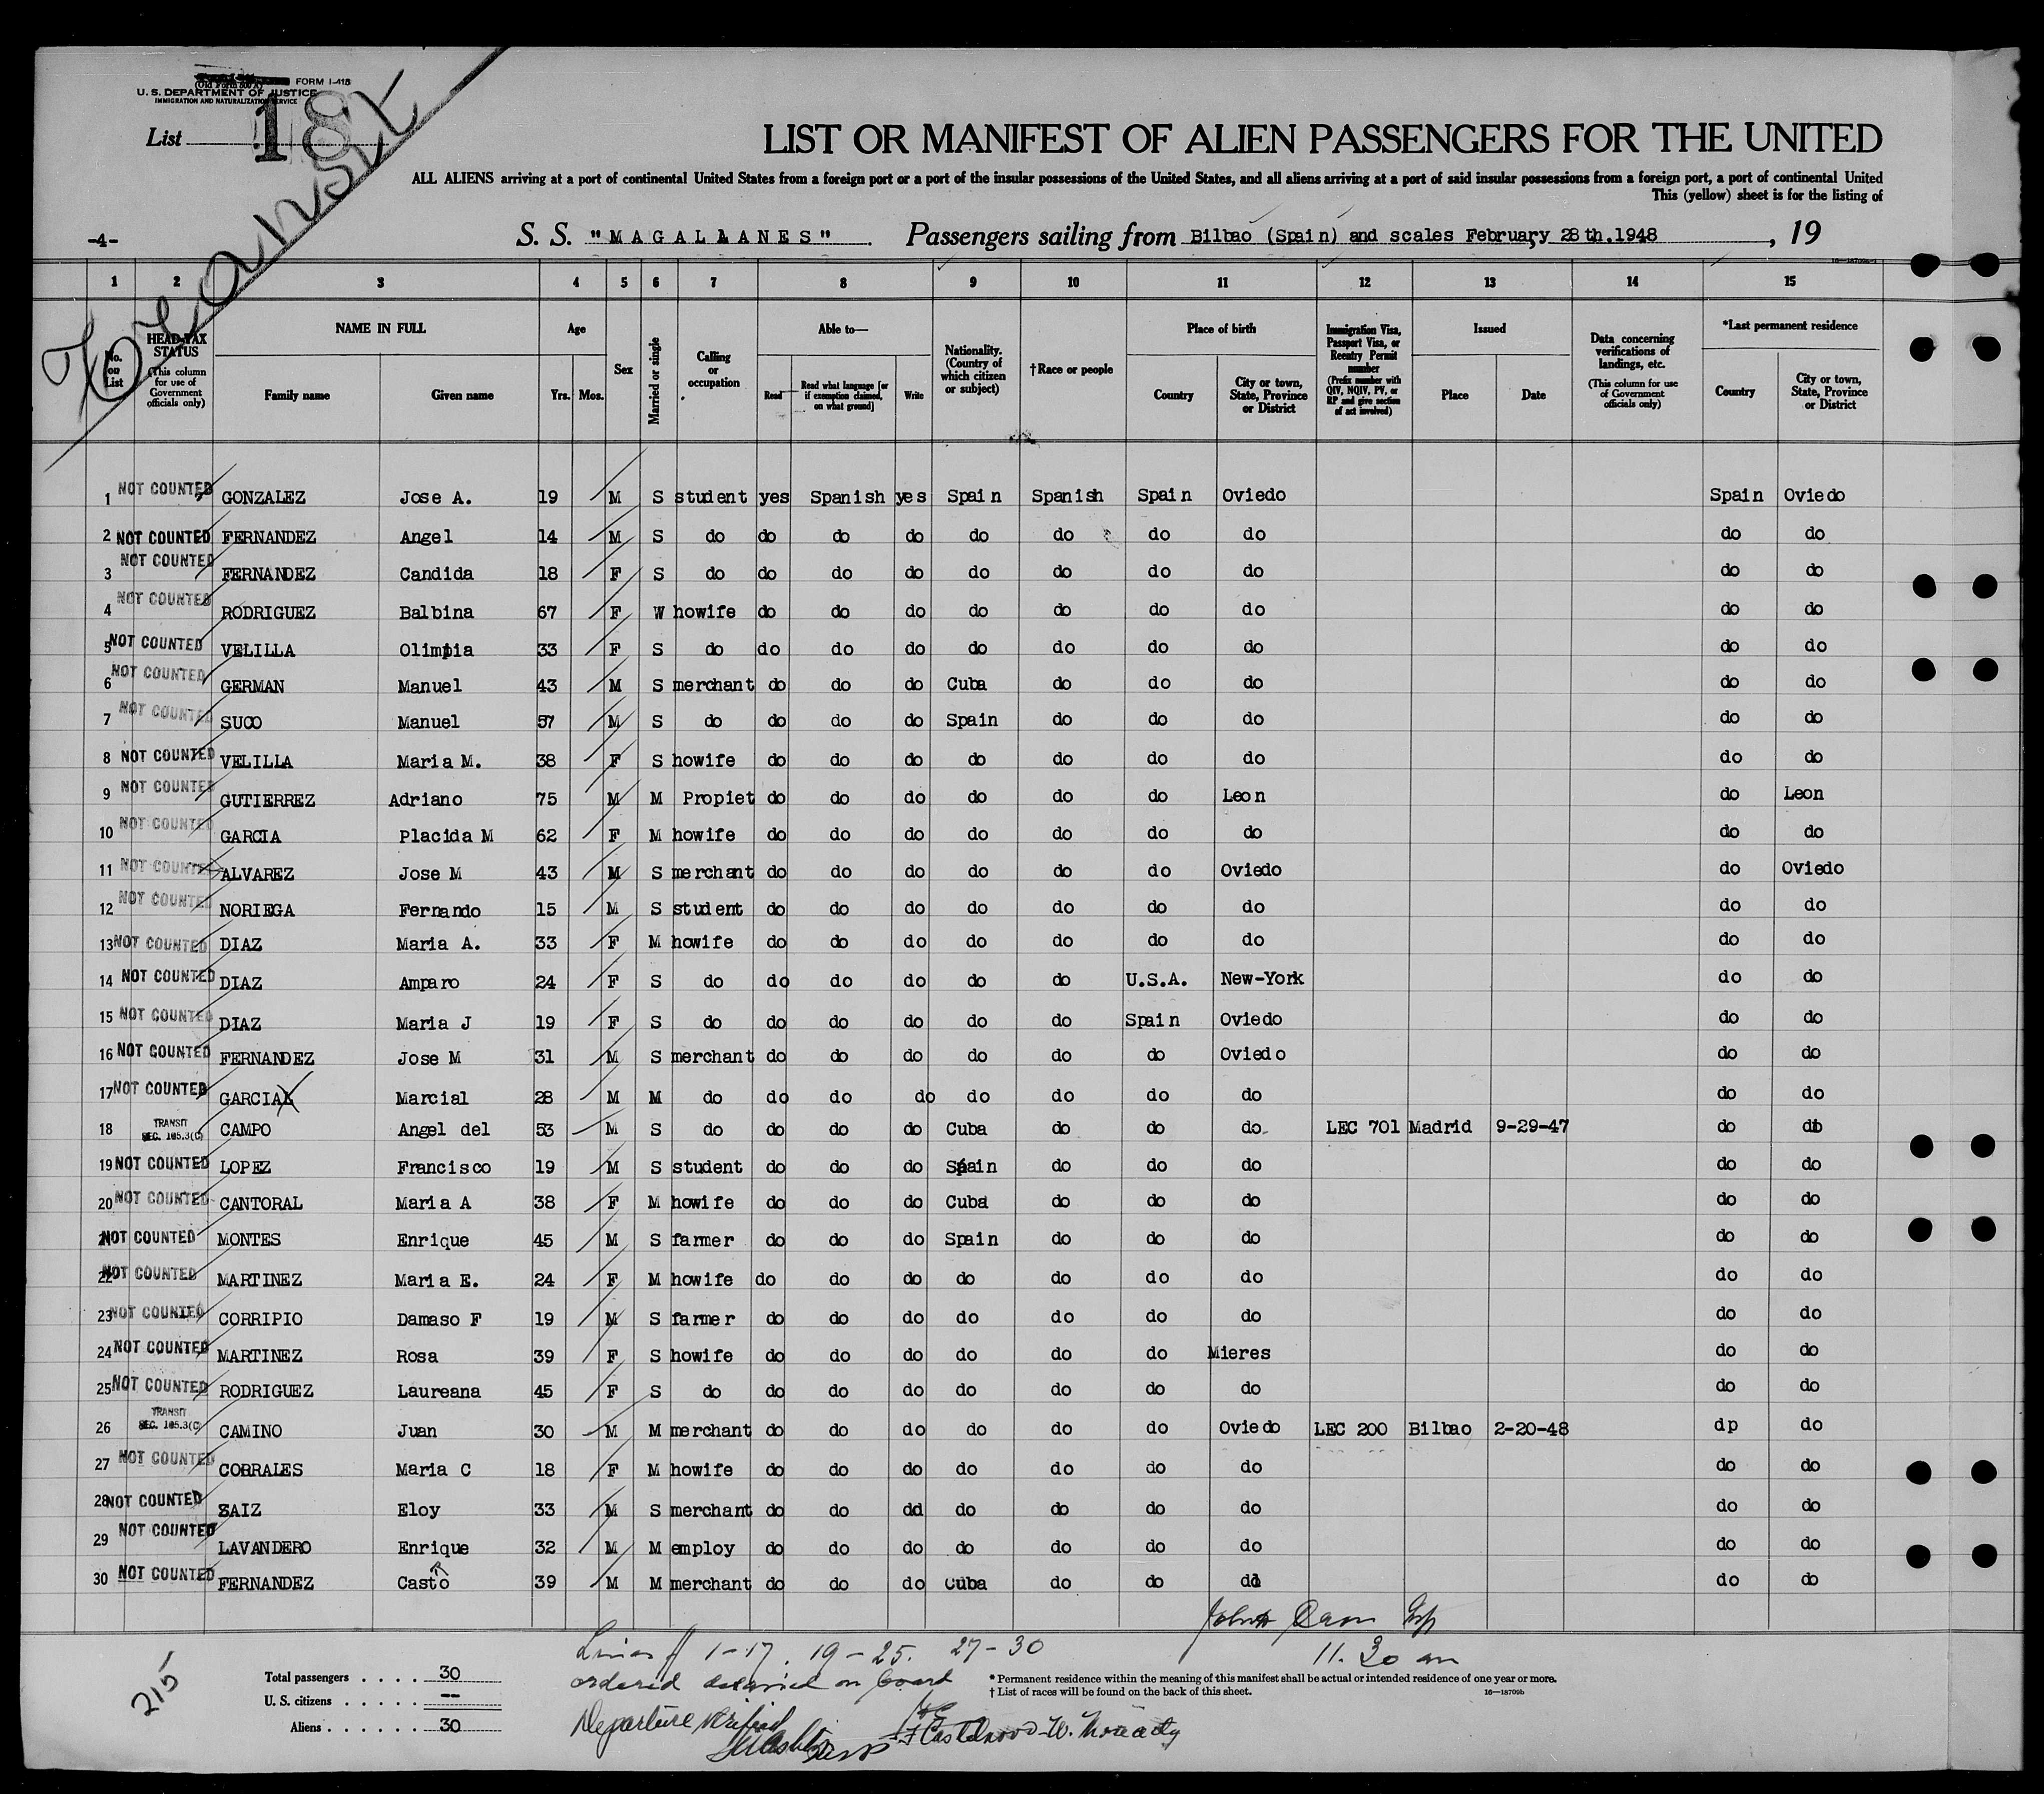 FORM I-415
(Old Form 500 A)
U. S. DEPARTMENT OF JUSTICE
IMMIGRATION AND NATURALIZATION SERVICE
List 18
Transit
LIST OR MANIFEST OF ALIEN PASSENGERS FOR THE UNITED
ALL ALIENS arriving at a port of continental United States from a foreign port or a port of the insular possessions of the United States, and all aliens arriving at a port of said insular possessions from a foreign port, a port of continental United
This (yellow) sheet is for the listing of
-4- S. S. "MAGALLANES" Passengers sailing from Bilbao (Spain) and scales February 28th.1948, 19
1 2 3 4 5 6 7 8 9 10 11 12 13 14 15
No. on List HEAD-TAX STATUS (This column for use of Government officials only) NAME IN FULL Family name Given name Age Yrs. Mos. Sex Married or single Calling or occupation Able to— Read Read what language [or if exemption claimed, on what ground] Write Nationality. (Country of which citizen or subject) †Race or people Place of birth Country City or town, State, Province or District Immigration Visa, Passport Visa, or Reentry Permit number (Prefix number with QIV, NQIV, PV, or RP and give section of act involved) Issued Place Date Data concerning verifications of landings, etc. (This column for use of Government officials only) *Last permanent residence Country City or town, State, Province or District
1 NOT COUNTED GONZALEZ Jose A. 19 M S student yes Spanish yes Spain Spanish Spain Oviedo Spain Oviedo
2 NOT COUNTED FERNANDEZ Angel 14 M S do do do do do do do do do do
3 NOT COUNTED FERNANDEZ Candida 18 F S do do do do do do do do do do
4 NOT COUNTED RODRIGUEZ Balbina 67 F W howife do do do do do do do do do
5 NOT COUNTED VELILLA Olimpia 33 F S do do do do do do do do do do
6 NOT COUNTED GERMAN Manuel 43 M S merchant do do do Cuba do do do do do
7 NOT COUNTED SUCO Manuel 57 M S do do do do Spain do do do do do
8 NOT COUNTED VELILLA Maria M. 38 F S howife do do do do do do do do do
9 NOT COUNTED GUTIERREZ Adriano 75 M M Propiet do do do do do do Leon do Leon
10 NOT COUNTED GARCIA Placida M 62 F M howife do do do do do do do do do
11 NOT COUNTED ALVAREZ Jose M 43 M S merchant do do do do do do Oviedo do Oviedo
12 NOT COUNTED NORIEGA Fernando 15 M S student do do do do do do do do do
13 NOT COUNTED DIAZ Maria A. 33 F M howife do do do do do do do do do
14 NOT COUNTED DIAZ Amparo 24 F S do do do do do do U.S.A. New-York do do
15 NOT COUNTED DIAZ Maria J 19 F S do do do do do do Spain Oviedo do do
16 NOT COUNTED FERNANDEZ Jose M 31 M S merchant do do do do do do Oviedo do do
17 NOT COUNTED GARCIA Marcial 28 M M do do do do do do do do do do
18 TRANSIT SEC. 105.3(C) CAMPO Angel del 53 M S do do do do Cuba do do do LEC 701 Madrid 9-29-47 do do
19 NOT COUNTED LOPEZ Francisco 19 M S student do do do Spain do do do do do
20 NOT COUNTED CANTORAL Maria A 38 F M howife do do do Cuba do do do do do
21 NOT COUNTED MONTES Enrique 45 M S farmer do do do Spain do do do do do
22 NOT COUNTED MARTINEZ Maria E. 24 F M howife do do do do do do do do do
23 NOT COUNTED CORRIPIO Damaso F 19 M S farmer do do do do do do do do do
24 NOT COUNTED MARTINEZ Rosa 39 F S howife do do do do do do Mieres do do
25 NOT COUNTED RODRIGUEZ Laureana 45 F S do do do do do do do do do do
26 TRANSIT SEC. 105.3(C) CAMINO Juan 30 M M merchant do do do do do do Oviedo LEC 200 Bilbao 2-20-48 dp do
27 NOT COUNTED CORRALES Maria C 18 F M howife do do do do do do do do do
28 NOT COUNTED SAIZ Eloy 33 M S merchant do do dd do do do do do do
29 NOT COUNTED LAVANDERO Enrique 32 M M employ do do do do do do do do do
30 NOT COUNTED FERNANDEZ Casto 39 M M merchant do do do Cuba do do dd do do
Lines 1-17. 19-25. 27-30
11.30 am
ordered detained on board
Departure Verified
215
Total passengers . . . . . 30
U. S. citizens . . . . . --
Aliens . . . . . . 30
* Permanent residence within the meaning of this manifest shall be actual or intended residence of one year or more.
† List of races will be found on the back of this sheet.
16—18700b